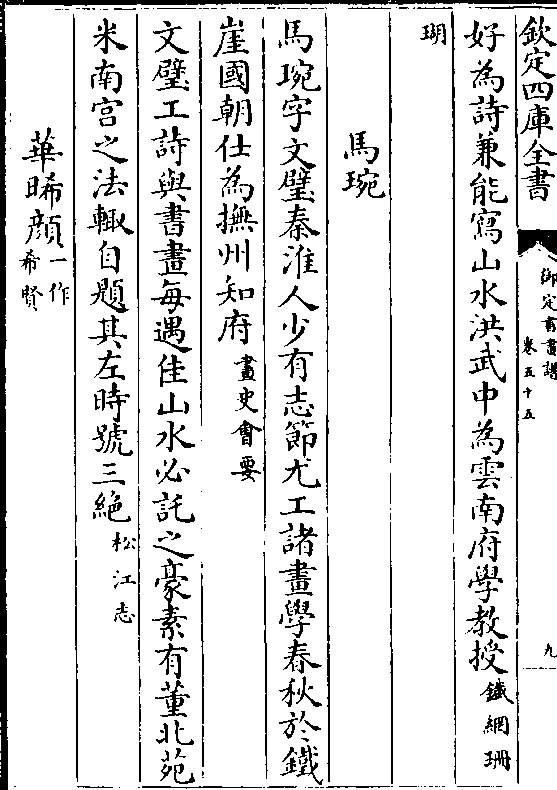 欽定四庫全書
御定書畫譜
卷五十五
九
好為詩兼能寫山水洪武中為雲南府學教授鐵網珊
瑚
馬琬
馬琬字文璧秦淮人少有志節尤工諸畫學春秋於鐵
崖國朝仕為撫州知府畫史會要
文璧工詩與書畫每遇佳山水必託之豪素有董北苑
米南宮之法輙自題其左時號三絶松江志
華晞顔一作希賢